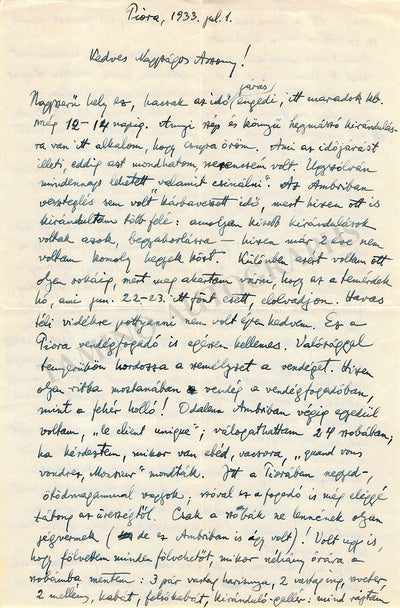 Piora, 1933. jul. 1.
Kedves Nagyságos Asszony!
járás
Nagyszerű hely ez, hacsak az idő engedi, itt maradok kb.
még 12-14 napig. Annyi szép és könnyű hegymászó kirándulás-
ra van itt alkalom, hogy csupa öröm. Ami az időjárást
illeti, eddig azt mondhatom, szerencsém volt. Úgyszólván
mindennap lehetett „valamit csinálni". Az Ambriban
veszteglés sem volt kárbaveszett idő, mert hiszen ott is
kirándultam többfelé: amolyan kisebb kirándulások
voltak azok, begyakorlásra – hiszen már 2 éve nem
voltam komoly hegyek közt. Különben azért voltam ott
olyan sokáig, mert meg akartam várni, hogy az a temérdek
hó, ami jun. 22-23. itt fönt esett, elolvadjon. Havas
téli vidékre pottyanni nem volt éppen kedvem. Ez a
Piora vendégfogadó is egészen kellemes. Valósággal
tenyerükön hordozza a személyzet a vendéget. Hiszen
olyan ritka mostanában a vendég a vendégfogadóban,
mint a fehér holló! Odalenn Ambriban végig egyedül
voltam, „le client unique"; válogathattam 24 szobában;
ha kérdeztem, mikor van ebéd, vacsora, „quand vous
voudrez, Monsieur" mondták. Itt a Piorában negyed-,
ötödmagammal vagyok; szóval ez a fogadó is még eléggé
tátong az ürességtől. Csak a szobák ne lennének olyan
jégvermek (de az Ambriban is úgy volt)! Volt úgy is,
hogy fölvettem minden fölvehetőt, mikor néhány órára a
szobámba mentem: 3 pár vastag harisnya, 2 vastag ing, sweater,
2 mellény, kabát, felsőkabát, kiránduló-gallér: mind rajtam
TAMINO AUTOGRAPHS